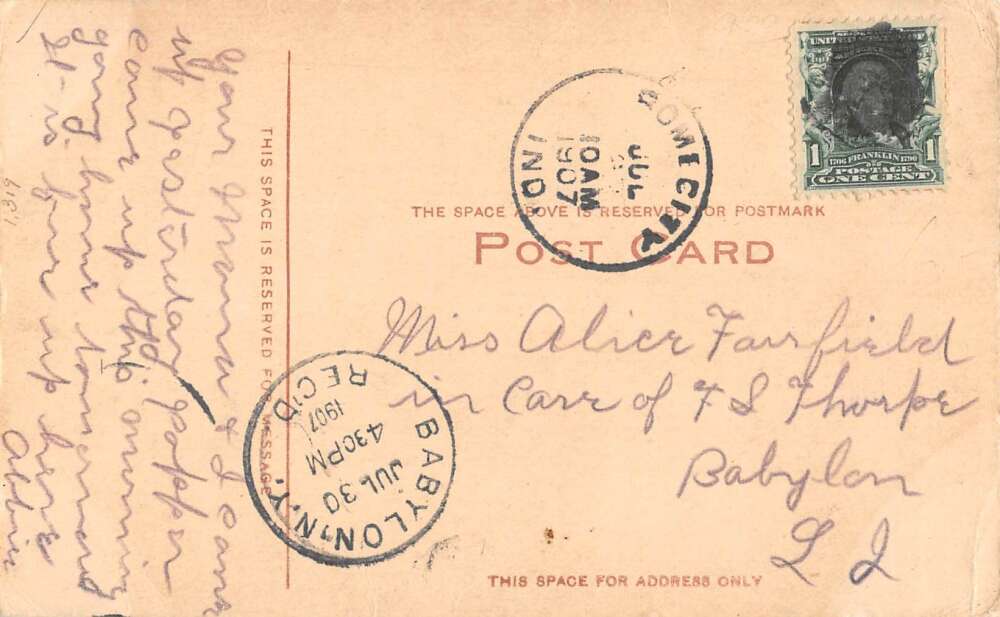 your Mama & I came
up yesterday papper
came up this morning
going home tomorrow
It is fine up here
Abbie
1,319
THIS SPACE IS RESERVED FOR MESSAGE
UNITED STATES OF
1
1706 FRANKLIN 1790
POSTAGE
ONE CENT
1
ROME CITY
IND.
JUL
10AM
1907
THE SPACE ABOVE IS RESERVED FOR POSTMARK
POST CARD
Miss Alice Fairfield
in Care of F S Thorpe
Babylon
L I
BABYLON, N.Y.
REC'D
1907
430PM
JUL 30
THIS SPACE FOR ADDRESS ONLY